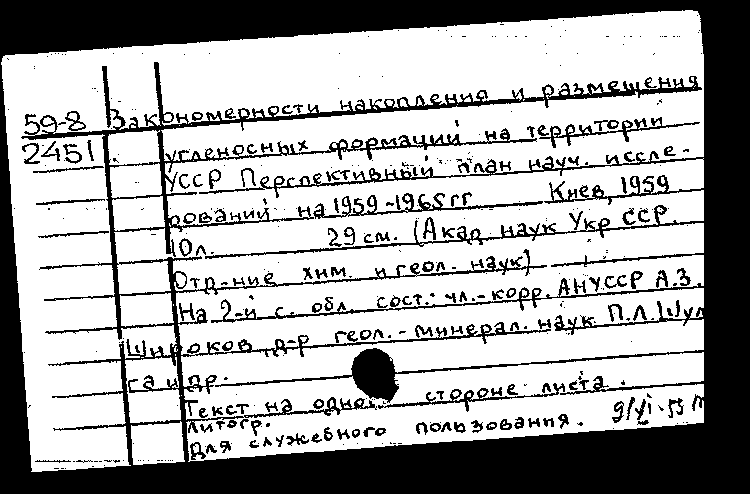 59-8 Закономерности накопления и размещения
2451. угленосных формаций на территории
УССР Перспективный план науч. иссле-
дований на 1959-1965 гг Киев, 1959
10л. 29 см. (Акад наук Укр ССР.
Отд-ние хим. и геол. наук)
На 2-й с. обл. сост.: чл.-корр. АН УССР А.З.
Широков, д-р геол.-минерал. наук П.Л. Шул
га и др.
Текст на одной стороне листа.
Литогр.
Для служебного пользования.